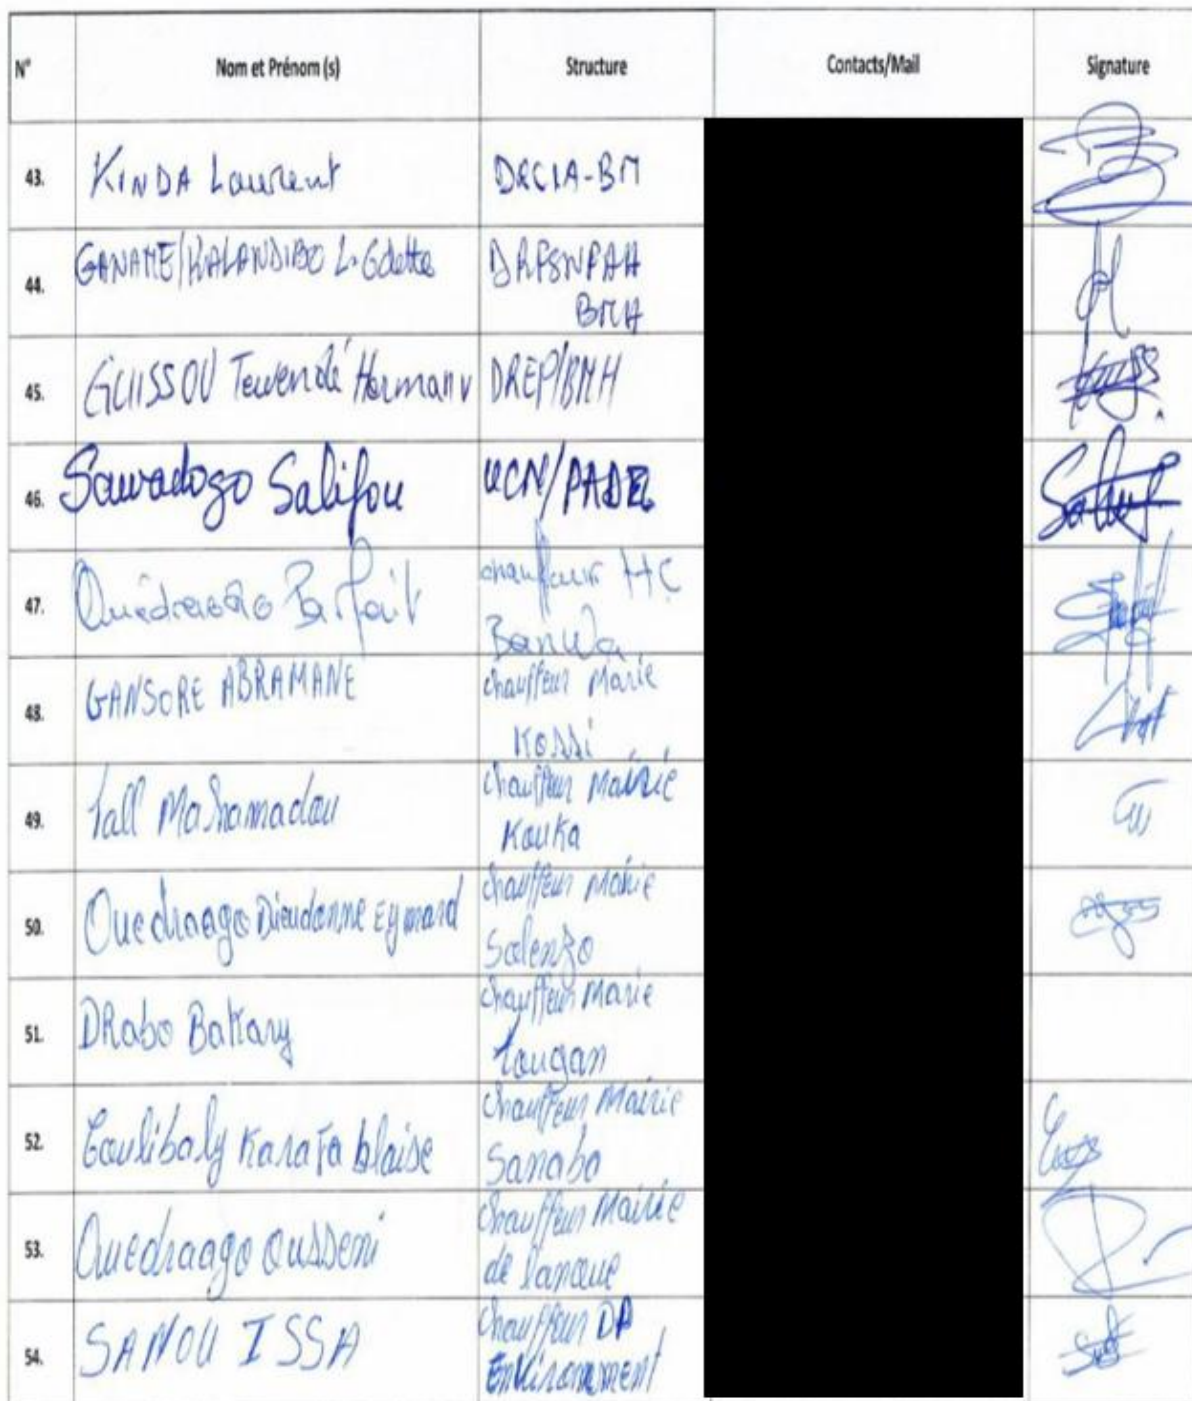 N° Nom et Prénom (s) Structure Contacts/Mail Signature
43. KINDA Laurent DRCIA-BM
44. GANAME/KALANDIBO L. Odette DRFSNFAH
BMH
45. GUISSOU Tewendé Hermann DREP/BMH
46. Sawadogo Salifou UCN/PADEL
47. Ouèdraogo Parfait chauffeur HC
Banwa
48. GANSORE ABRAMANE chauffeur Marie
Kossi
49. Tall Mahamadou chauffeur Mairie
Kouka
50. Ouedraago Dieudonne Eymard chauffeur Mairie
Solenzo
51. DRabo Bakary chauffeur Marie
Tougan
52. Coulibaly Karafa blaise chauffeur Mairie
Sanaba
53. Ouedraago Ousseni chauffeur Mairie
de
54. SANOU ISSA chauffeur DR
Environnement